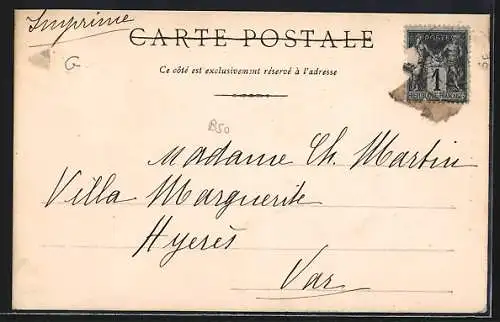 Imprimé
CARTE POSTALE
Ce côté est exclusivement réservé à l'adresse
G
B50
POSTES
1
RÉPUBLIQUE FRANÇAISE
Madame Ch. Martin
Villa Marguerite
Hyerès
Var